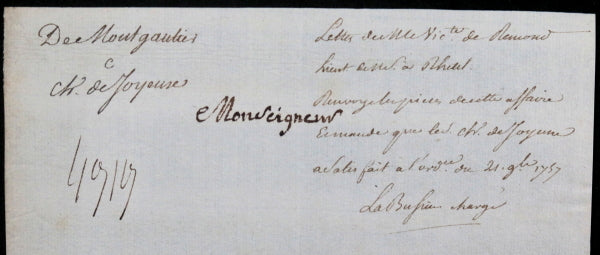 De Montgautier
C
Ch. de Joyeuse
Monseigneur
Lettre de M le Vic.te de Remond
Lieut de Nrs. a Rhetel.
Renvoye les pieces de cette affaire
Et mande que le Ch. de Joyeuse
a satisfait a l'ord.re du 21. 9bre 1757
La Bussiere chargé